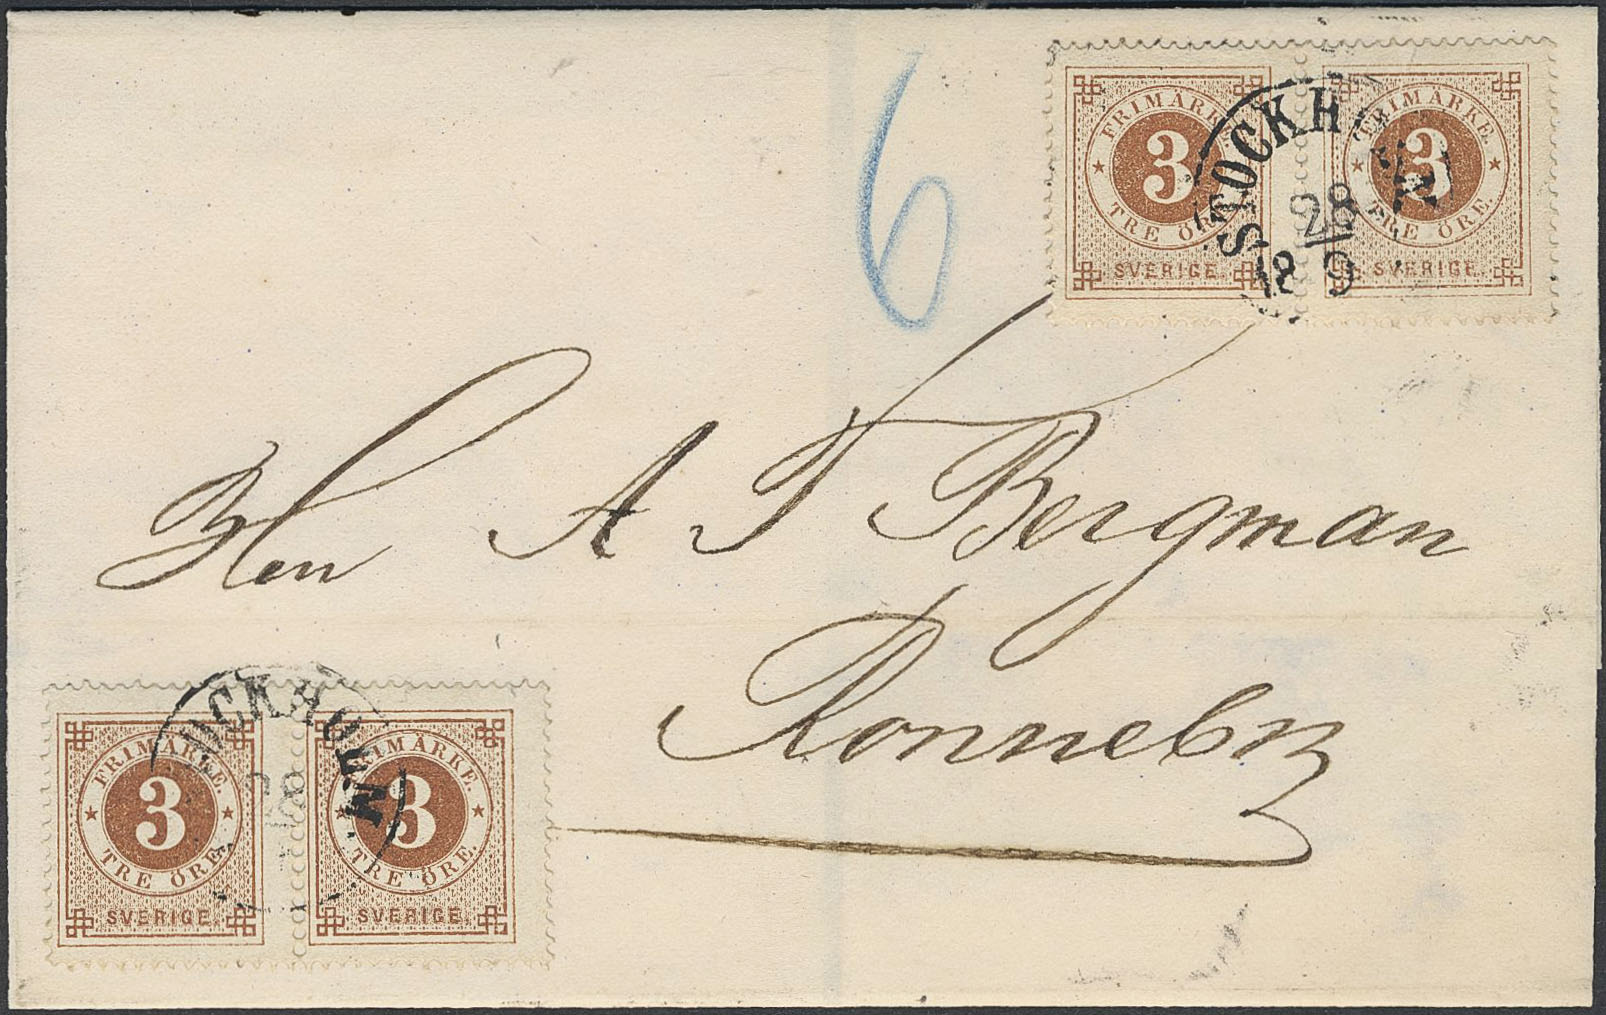 6
FRIMÄRKE.
3
TRE ÖRE.
SVERIGE.
FRIMÄRKE.
3
TRE ÖRE.
SVERIGE.
STOCKH M
28
9
18
Herr A F Bergman
Ronneby
FRIMÄRKE.
3
TRE ÖRE.
SVERIGE.
FRIMÄRKE.
3
TRE ÖRE.
SVERIGE.
OCKHOLM